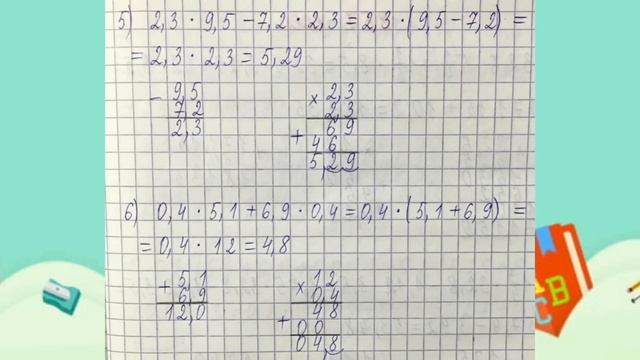 5) 2,3 · 9,5 − 7,2 · 2,3 = 2,3 · (9,5 − 7,2) =
= 2,3 · 2,3 = 5,29
− 9,5
7 2
2,3
× 2,3
2,3
+ 6 9
4 6
5,2 9
6) 0,4 · 5,1 + 6,9 · 0,4 = 0,4 · (5,1 + 6,9) =
= 0,4 · 12 = 4,8
+ 5,1
6,9
12,0
× 1 2
0,4
+ 4 8
0 0
0 4,8
C B